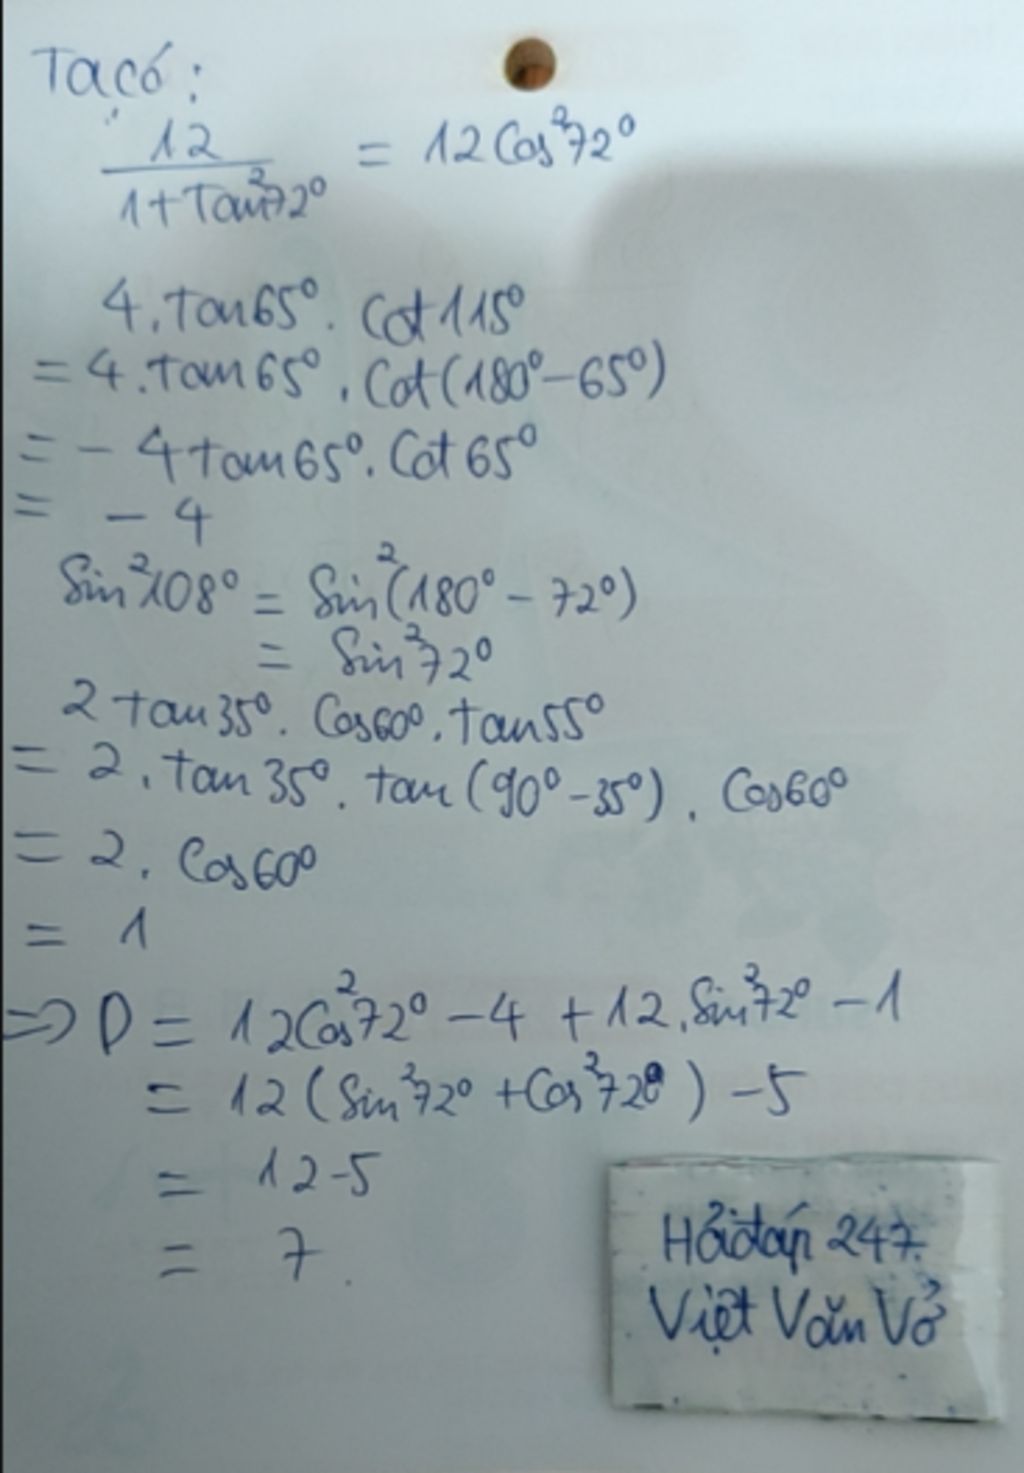 Ta có:
12 / (1+Tan²72°) = 12 Cos²72°
4.Tan65°. Cot 115°
= 4.Tam65°. Cot(180°-65°)
= - 4tam65°. Cot 65°
= - 4
Sin²108° = Sin²(180° - 72°)
= Sin²72°
2 tan35°. Cos60°. tan55°
= 2. tan 35°. tan (90°-35°). Cos60°
= 2. Cos60°
= 1
=> D = 12Cos²72° - 4 + 12.Sin²72° - 1
= 12(Sin²72° + Cos²72°) - 5
= 12-5
= 7.
Hỏiđáp 247.
Việt Văn Vở